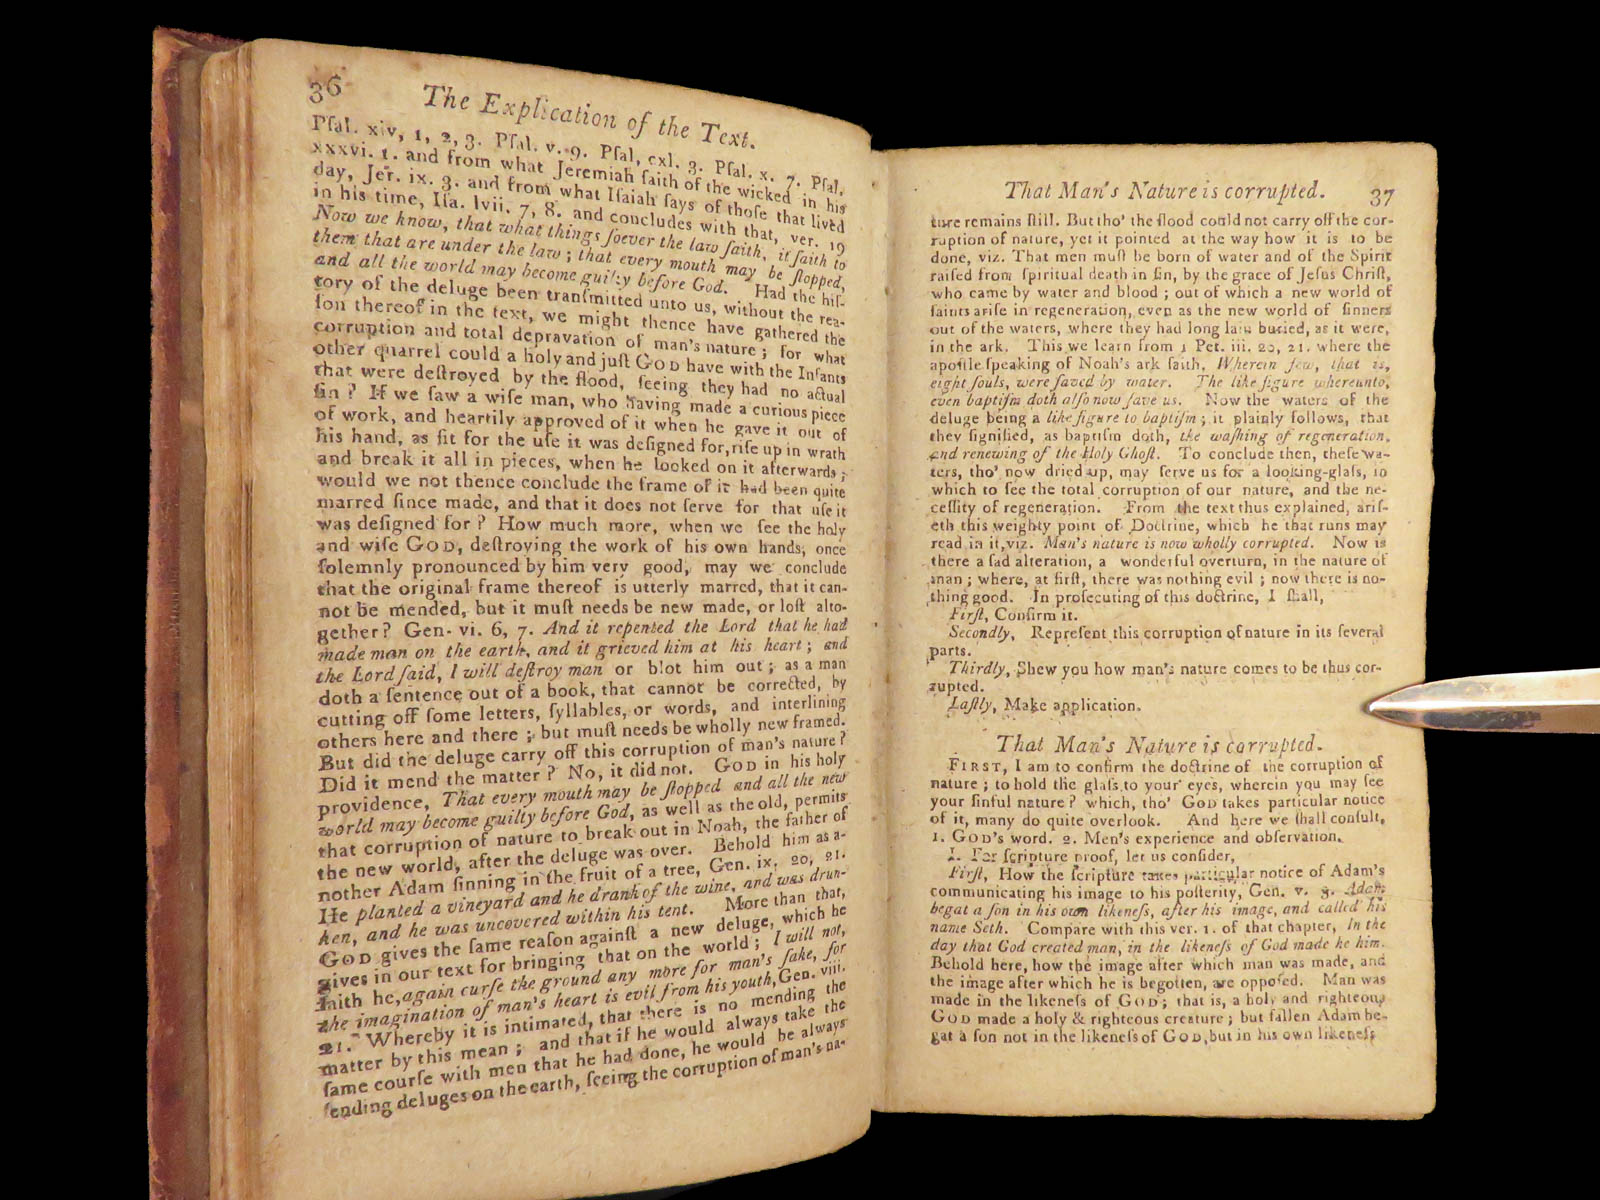 36
The Explication of the Text.
Pſal. xiv, 1, 2, 3. Pſal. v. 9. Pſal, cxl. 3. Pſal. x. 7. Pſal.
xxxvi. 1. and from what Jeremiah ſaith of the wicked in his
day, Jer. ix. 3. and from what Iſaiah ſays of thoſe that lived
in his time, Iſa. lvii. 7, 8. and concludes with that, ver. 19
Now we know, that what things ſoever the law ſaith, it ſaith to
them that are under the law; that every mouth may be ſtopped,
and all the world may become guilty before God. Had the hiſ-
tory of the deluge been tranſmitted unto us, without the rea-
ſon thereof in the text, we might thence have gathered the
corruption and total depravation of man's nature; for what
other quarrel could a holy and juſt GOD have with the Infants
that were deſtroyed by the flood, ſeeing they had no actual
ſin? If we ſaw a wiſe man, who having made a curious piece
of work, and heartily approved of it when he gave it out of
his hand, as fit for the uſe it was deſigned for, riſe up in wrath
and break it all in pieces, when he looked on it afterwards;
would we not thence conclude the frame of it had been quite
marred ſince made, and that it does not ſerve for that uſe it
was deſigned for? How much more, when we ſee the holy
and wiſe GOD, deſtroying the work of his own hands, once
ſolemnly pronounced by him very good, may we conclude
that the original frame thereof is utterly marred, that it can-
not be mended, but it muſt needs be new made, or loſt alto-
gether? Gen. vi. 6, 7. And it repented the Lord that he had
made man on the earth, and it grieved him at his heart; and
the Lord ſaid, I will deſtroy man or blot him out; as a man
doth a ſentence out of a book, that cannot be corrected, by
cutting off ſome letters, ſyllables, or words, and interlining
others here and there; but muſt needs be wholly new framed.
But did the deluge carry off this corruption of man's nature?
Did it mend the matter? No, it did not. GOD in his holy
providence, That every mouth may be ſtopped and all the new
world may become guilty before God, as well as the old, permits
that corruption of nature to break out in Noah, the father of
the new world, after the deluge was over. Behold him as a-
nother Adam ſinning in the fruit of a tree, Gen. ix. 20, 21.
He planted a vineyard and he drank of the wine, and was drun-
ken, and he was uncovered within his tent. More than that,
GOD gives the ſame reaſon againſt a new deluge, which he
gives in our text for bringing that on the world; I will not,
ſaith he, again curſe the ground any more for man's ſake, for
the imagination of man's heart is evil from his youth, Gen. viii.
21. Whereby it is intimated, that there is no mending the
matter by this mean; and that if he would always take the
ſame courſe with men that he had done, he would be always
ſending deluges on the earth, ſeeing the corruption of man's na-
That Man's Nature is corrupted. 37
ture remains ſtill. But tho' the flood could not carry off the cor-
ruption of nature, yet it pointed at the way how it is to be
done, viz. That men muſt be born of water and of the Spirit
raiſed from ſpiritual death in ſin, by the grace of Jeſus Chriſt,
who came by water and blood; out of which a new world of
ſaints ariſe in regeneration, even as the new world of ſinners
out of the waters, where they had long lain buried, as it were,
in the ark. This we learn from 1 Pet. iii. 20, 21. where the
apoſtle ſpeaking of Noah's ark ſaith, Wherein few, that is,
eight ſouls, were ſaved by water. The like figure whereunto,
even baptiſm doth alſo now ſave us. Now the waters of the
deluge being a like figure to baptiſm; it plainly follows, that
they ſignified, as baptiſm doth, the waſhing of regeneration,
and renewing of the Holy Ghoſt. To conclude then, theſe wa-
ters, tho' now dried up, may ſerve us for a looking-glaſs, in
which to ſee the total corruption of our nature, and the ne-
ceſſity of regeneration. From the text thus explained, ariſ-
eth this weighty point of Doctrine, which he that runs may
read in it, viz. Man's nature is now wholly corrupted. Now is
there a ſad alteration, a wonderful overturn, in the nature of
man; where, at firſt, there was nothing evil; now there is no-
thing good. In proſecuting of this doctrine, I ſhall,
Firſt, Confirm it.
Secondly, Repreſent this corruption of nature in its ſeveral
parts.
Thirdly, Shew you how man's nature comes to be thus cor-
rupted.
Laſtly, Make application.
That Man's Nature is corrupted.
FIRST, I am to confirm the doctrine of the corruption of
nature; to hold the glaſs to your eyes, wherein you may ſee
your ſinful nature? which, tho' GOD takes particular notice
of it, many do quite overlook. And here we ſhall conſult,
1. GOD's word. 2. Men's experience and obſervation.
I. For ſcripture proof, let us conſider,
Firſt, How the ſcripture takes particular notice of Adam's
communicating his image to his poſterity, Gen. v. 3. Adam
begat a ſon in his own likeneſs, after his image, and called his
name Seth. Compare with this ver. 1. of that chapter, In the
day that God created man, in the likeneſs of God made he him.
Behold here, how the image after which man was made, and
the image after which he is begotten, are oppoſed. Man was
made in the likeneſs of GOD; that is, a holy and righteous
GOD made a holy & righteous creature; but fallen Adam be-
gat a ſon not in the likeneſs of GOD, but in his own likeneſs